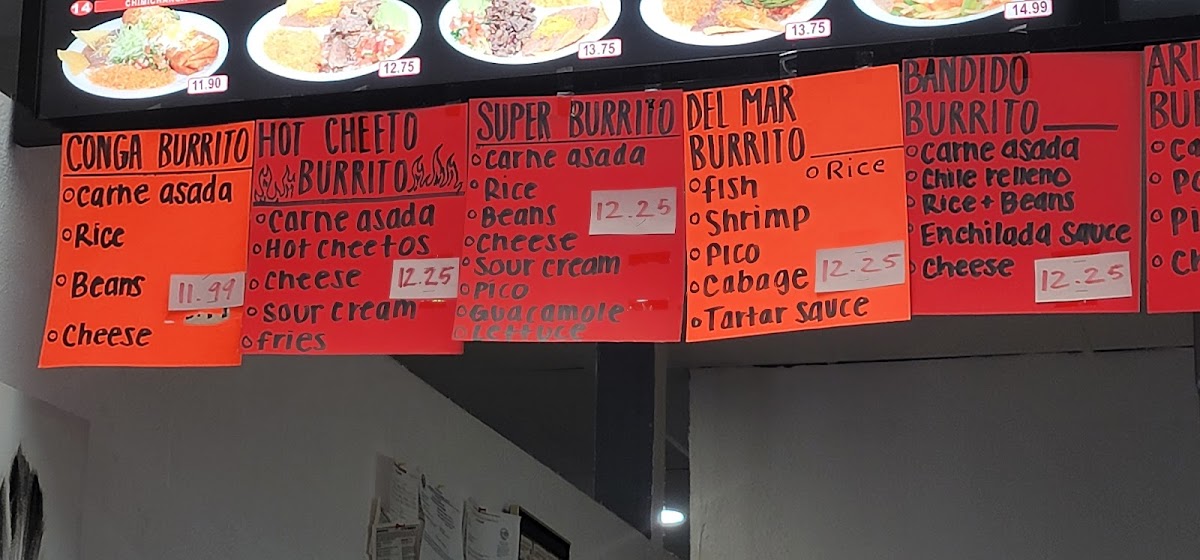 14
11.90
12.75
13.75
13.75
14.99
CONGA BURRITO
carne asada
Rice
Beans
11.99
Cheese
HOT CHEETO
BURRITO
carne asada
Hot cheetos
cheese
12.25
sour cream
fries
SUPER BURRITO
carne asada
Rice
Beans
12.25
cheese
sour cream
Pico
Guacamole
Lettuce
DEL MAR
BURRITO
Rice
fish
Shrimp
Pico
Cabage
12.25
Tartar sauce
BANDIDO
BURRITO
carne asada
chile relleno
Rice + Beans
Enchilada sauce
Cheese
12.25